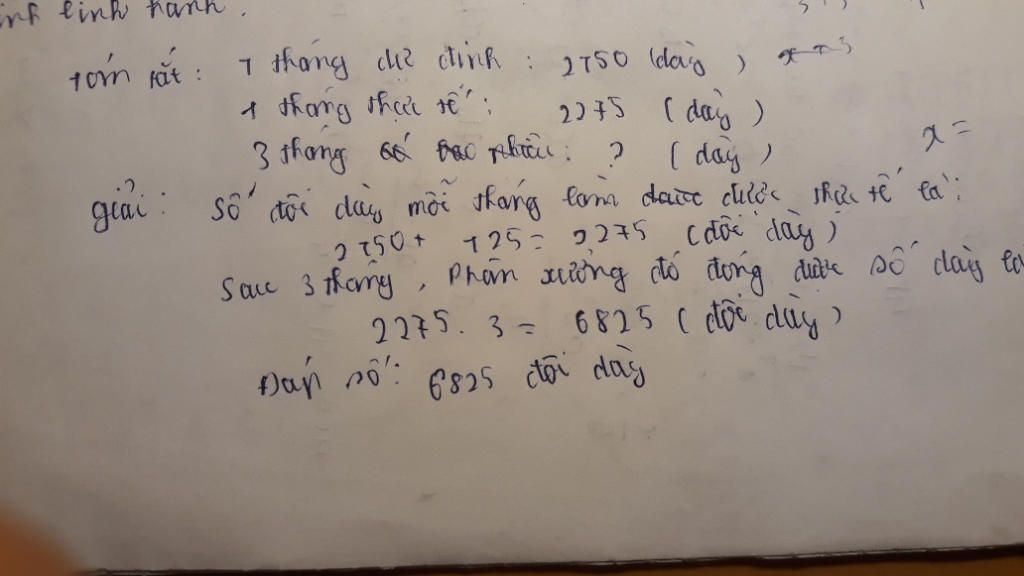 linh hành.
tóm tắt: 1 tháng dự định: 2150 (dày)
1 tháng thực tế: 2275 (dày)
3 tháng nhiêu: ? (dày)
x =
giải: Số đôi dày mỗi tháng làm được thực tế là:
2150 + 125 = 2275 (đôi dày)
Sau 3 tháng, Phân xưởng đó đóng được số dày là
2275. 3 = 6825 (đôi dày)
Đáp số: 6825 đôi dày